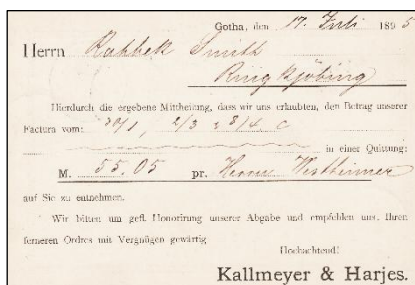 Gotha, den 17. Juli 1895
Herrn Rahbek Smith
Ringkjöbing
Hierdurch die ergebene Mittheilung, dass wir uns erlaubten, den Betrag unserer
Factura vom: 30/1, 2/3 & 8/4. c
in einer Quittung:
M. 55.05 pr. Herrn
auf Sie zu entnehmen.
Wir bitten um gefl. Honorirung unserer Abgabe und empfehlen uns, Ihren
ferneren Ordres mit Vergnügen gewärtig
Hochachtend!
Kallmeyer & Harjes.